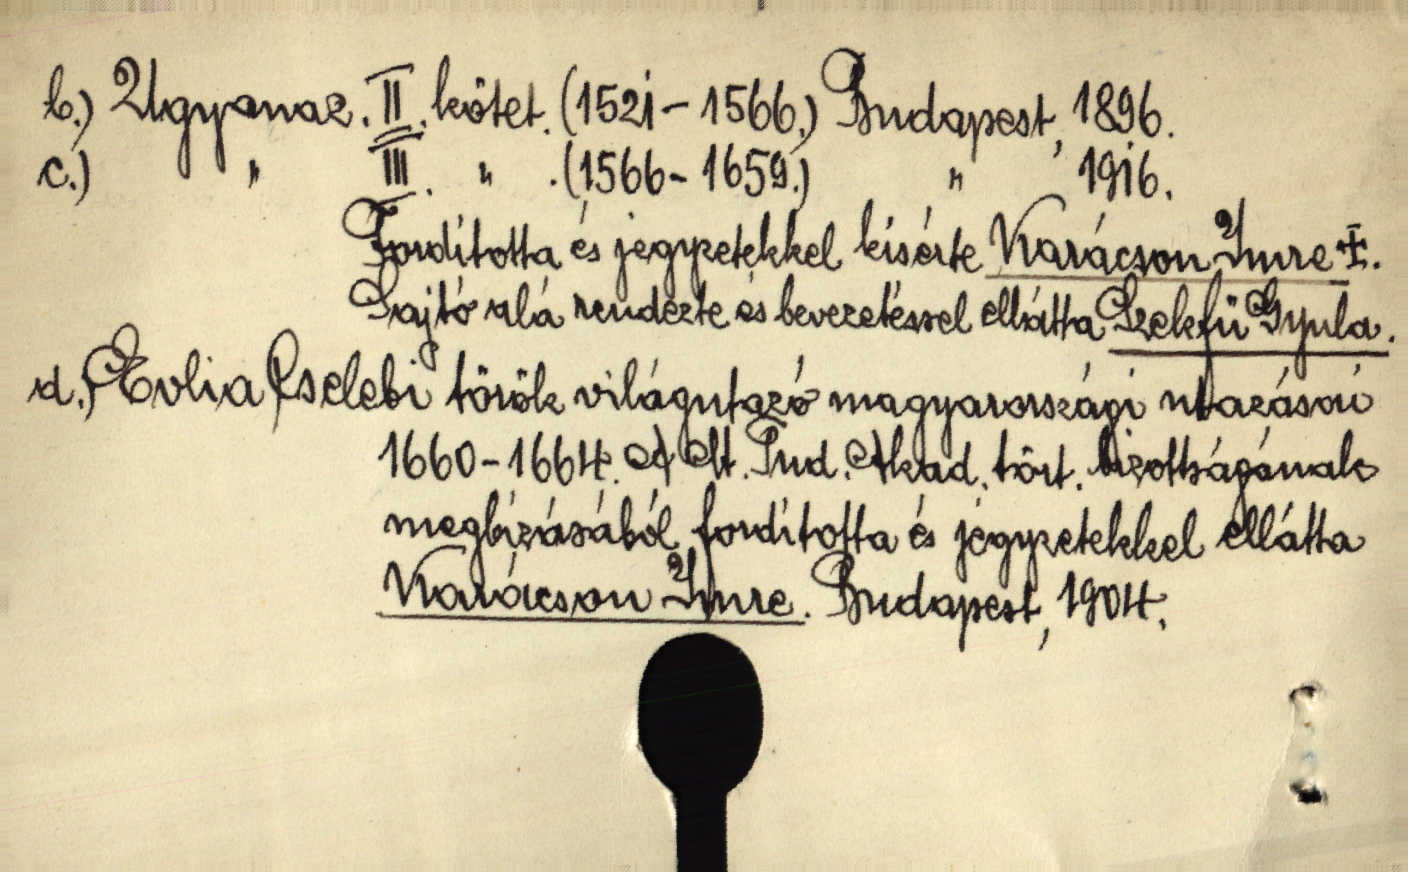 b.) Ugyanaz. II. kötet. (1521-1566.) Budapest, 1896.
c.) " III. " .(1566-1659.) " 1916.
Fordította és jegyzetekkel kísérte Karácson Imre †.
Sajtó alá rendezte és bevezetéssel ellátta Szekfü Gyula.
d.) Evlia Cselebi török világutazó magyarországi utazásai
1660-1664. A M. Tud. Akad. tört. bizottságának
megbízásából fordította és jegyzetekkel ellátta
Karácson Imre. Budapest, 1904.